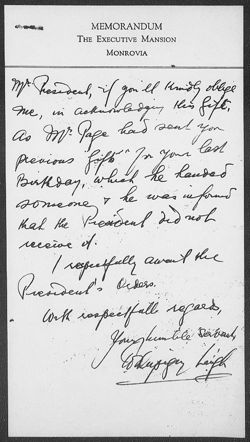 MEMORANDUM
THE EXECUTIVE MANSION
MONROVIA
Mr. President, if you'll kindly oblige
me, in acknowledging this gift,
as Mr. Page had sent you
previous "gifts" for your last
Birthday, which he handed
someone & he was informed
that the President did not
receive it.
I respectfully await the
President's orders.
With respectfull regards,
Yours humble Servant,